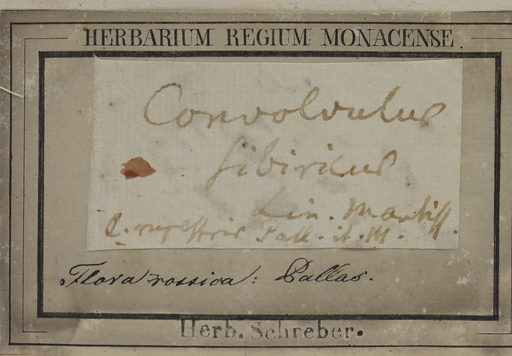 HERBARIUM REGIUM MONACENSE.
Convolvulus
sibiricus
Lin. Mantiss.
C. rupestris Pall. it. III.
Flora rossica: Pallas.
Herb. Schreber.